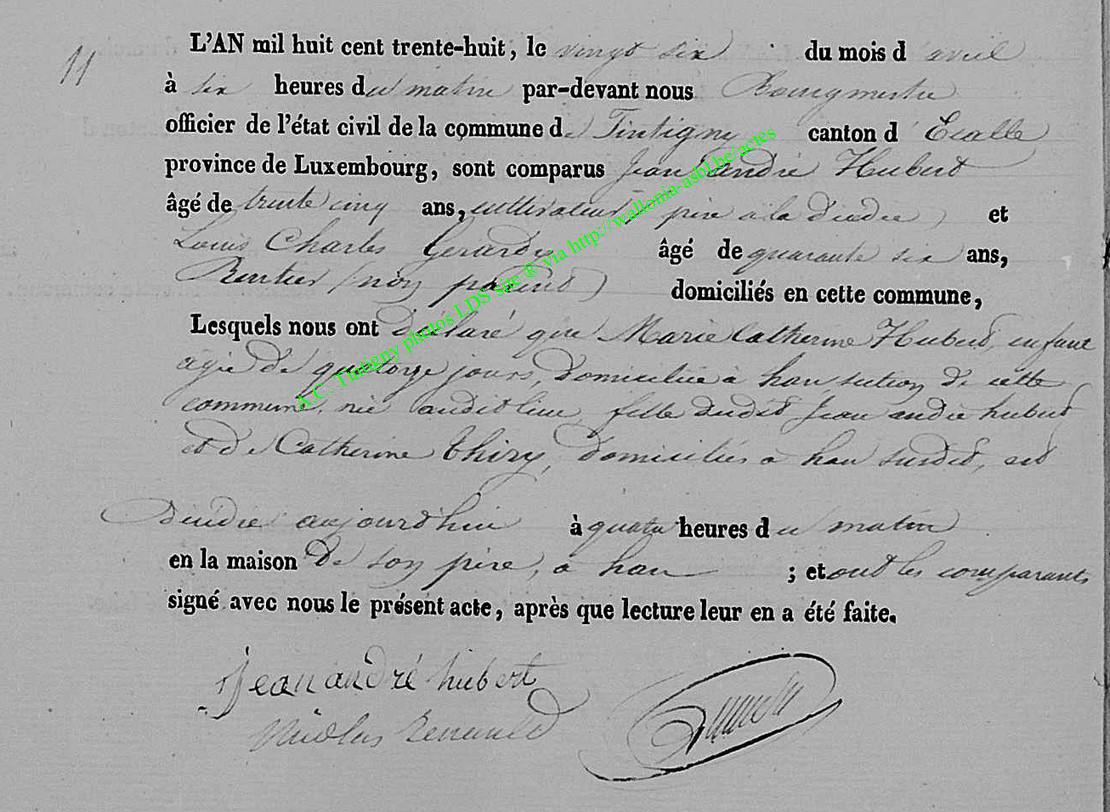 11
L'AN mil huit cent trente-huit, le vingt six du mois d avril
à six heures du matin par-devant nous Bourgmestre
officier de l'état civil de la commune de Tintigny canton d' Etalle
province de Luxembourg, sont comparus Jean André Hubert
âgé de trente cinq ans, cultivateur, père à la décédée ) et
Louis Charles Gerard âgé de quarante six ans,
Rentier (non parent) domiciliés en cette commune,
Lesquels nous ont déclaré que Marie Catherine Hubert, enfant
agée de quatorze jours, domiciliée à han section de cette
commune, née audit lieu fille dudit Jean andré hubert
et de Catherine Thiry, domiciliés a han susdit, est
décédée aujourd'hui à quatre heures du matin
en la maison de son père, a han ; et ont les comparants
signé avec nous le présent acte, après que lecture leur en a été faite.
jean andré hubert
Nicolas
A.C. Tintigny photos LDS site ® via http://wallonia-asbl.be/actes